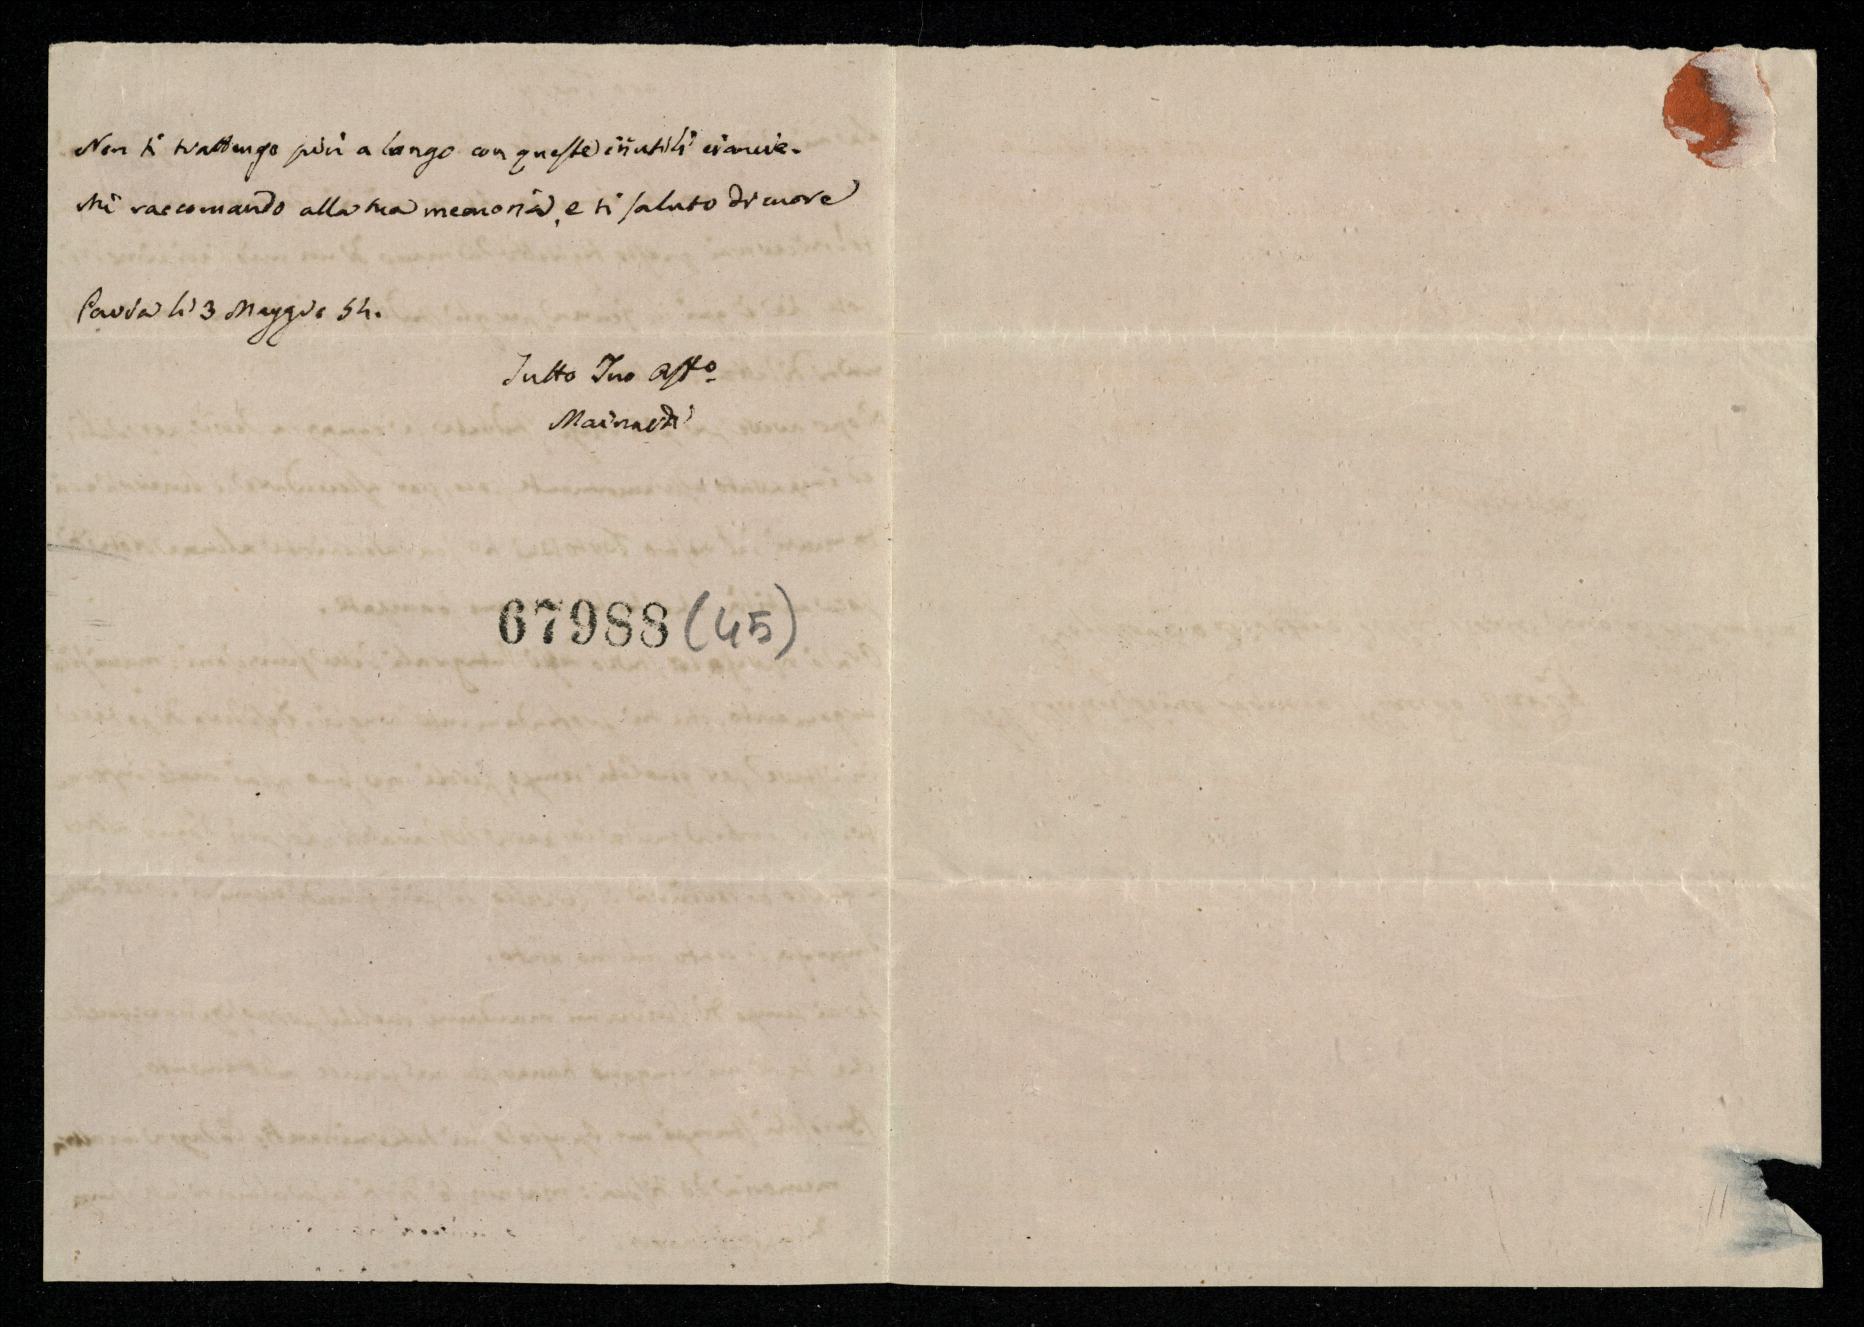 Non ti trattengo più a lungo con queste inutili ciancie.
Mi raccomando alla tua memoria, e ti saluto di cuore
Pavia li 3 Maggio 54.
Tutto Tuo Affo
67988 (45)